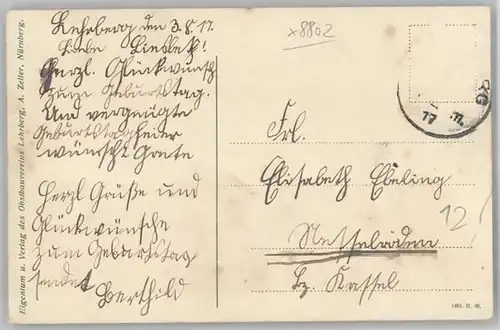 Lehrberg den 3.8.17.
Liebe Liesbeth!
Herzl. Glückwunsch
zum Geburtstag.
Und vergnügte
Geburtstagfeier
wünscht Grete
Herzl Grüße und
Glückwünsche
zum Geburtstag
sendet Berthold
x8802
Frl.
Elisabeth Ebeling
Netzelröden
Bz. Kassel
12/
17
Eigentum u. Verlag des Obstbauvereins Lehrberg. A. Zeller, Nürnberg.